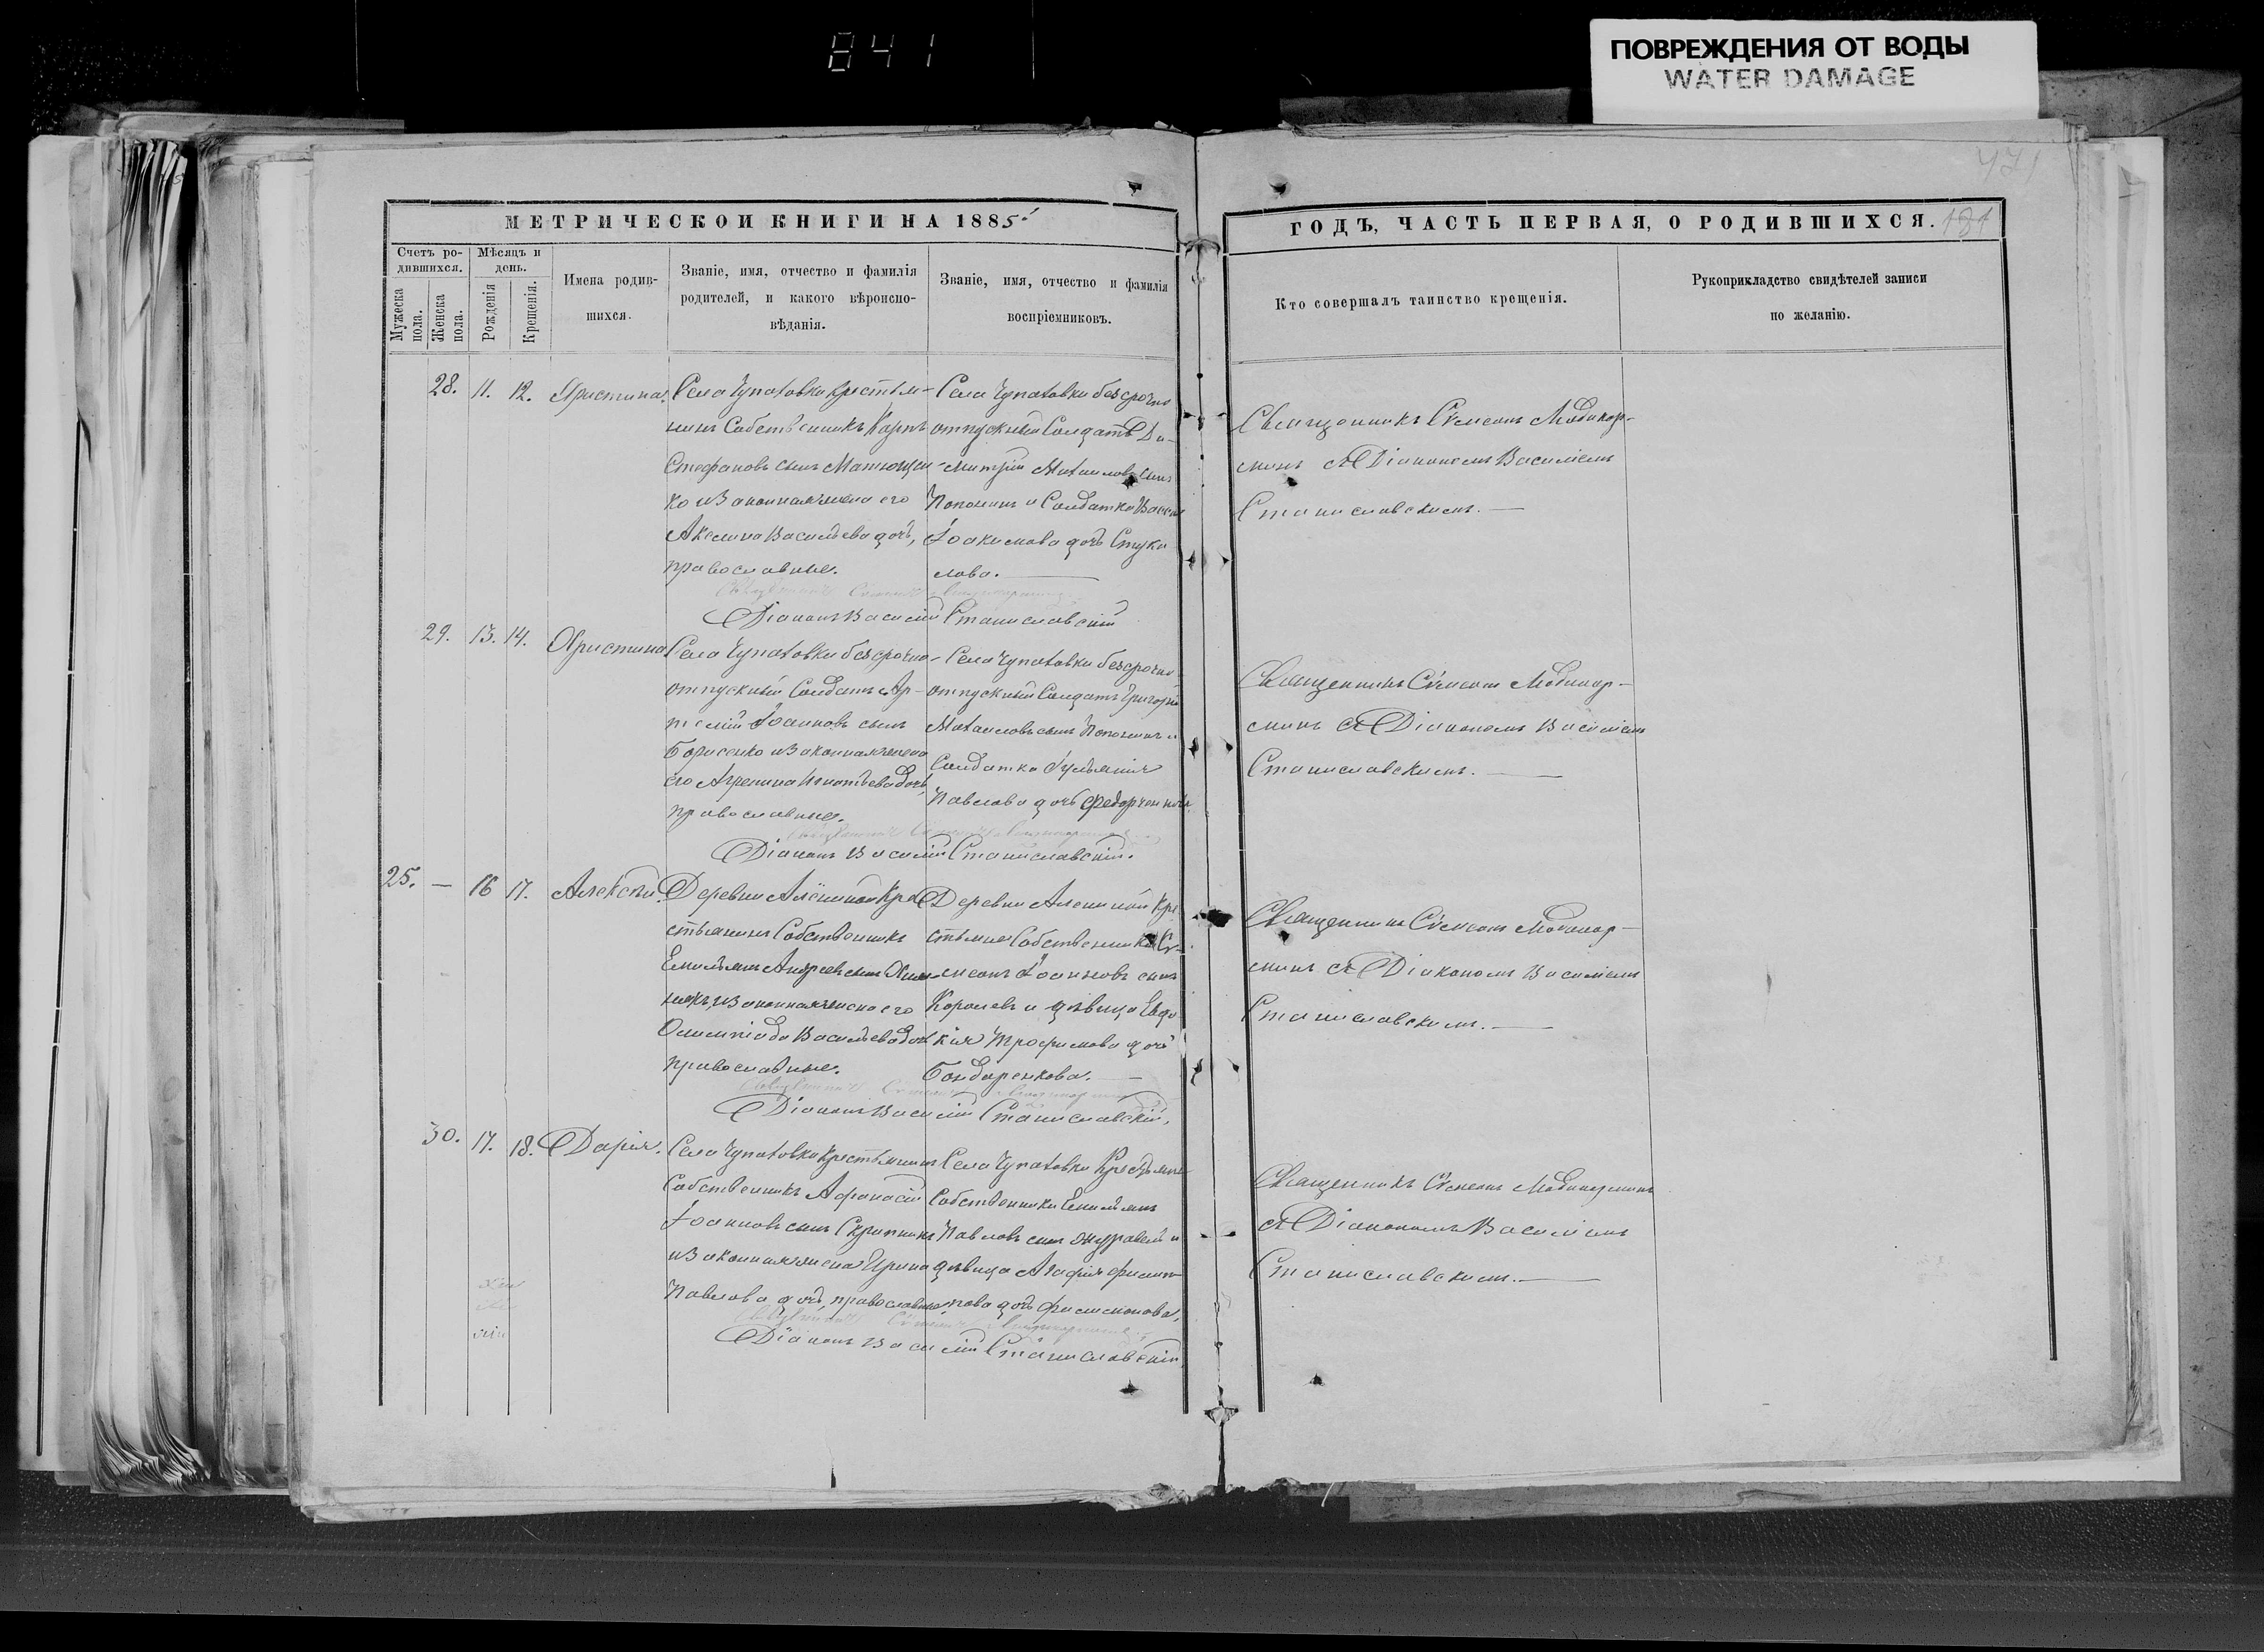 841
ПОВРЕЖДЕНИЯ ОТ ВОДЫ
WATER DAMAGE
471
МЕТРИЧЕСКОЙ КНИГИ НА 1885
Счетъ родившихся.
Мужеска пола.
Женска пола.
Мѣсяцъ и день.
Рожденія
Крещенія.
Имена родившихся.
Званіе, имя, отчество и фамилія
родителей, и какого вѣроиспо-
вѣданія.
Званіе, имя, отчество и фамилія
воспріемниковъ.
ГОДЪ, ЧАСТЬ ПЕРВАЯ, О РОДИВШИХСЯ.
Кто совершалъ таинство крещенія.
Рукоприкладство свидѣтелей записи
по желанію.
28. 11. 12. Христина.
Села Чупаховки крестья-
нинъ Собственникъ Карпъ
Стефановъ сынъ
ко и законная жена его
Акелина Васильева дочь,
православные.
Села Чупаховки безсрочно
отпускный Солдатъ Ди-
митрій Михаиловъ сынъ
и Солдатка
Іоакимова дочь Стука
лова.
Священникъ Сѵмеонъ
съ Діакономъ Василіемъ
Станиславскимъ.
Діаконъ Василій Станиславскій
29. 13. 14. Христина
Села Чупаховки безсрочно-
отпускный Солдатъ Ар-
темій Іоанновъ сынъ
Борисенко и законная жена
его Агрепина Игнатьева дочь,
православные.
Села Чупаховки безсрочно
отпускный Солдатъ Григорій
Михаиловъ сынъ и
Солдатка Іуліанія
Павлова дочь Федорченкова
Священникъ Сѵмеонъ
съ Діакономъ Василіемъ
Станиславскимъ.
Діаконъ Василій Станиславскій.
25. — 16 17. Алексѣй.
Деревни Алениной Кре
стьянинъ Собственникъ
Емельянъ Андреевъ сынъ
и законная жена его
Олимпіада Васильева дочь
православные.
Деревни Алениной Кре
стьяне Собственники Сѵ-
меонъ Іоанновъ сынъ
Королевъ и дѣвица Евдо
кія Трофимова дочь
Бондаренкова.
Священникъ Сѵмеонъ
съ Діакономъ Василіемъ
Станиславскимъ.
Діаконъ Василій Станиславскій.
30. 17. 18. Дарія.
Села Чупаховки Крестьянинъ
Собственникъ Афанасій
Іоанновъ сынъ Скрипникъ
и законная жена Ирина
Павлова дочь, православные
Села Чупаховки Крестьяне
Собственники Емельянъ
Павловъ сынъ Журавель и
дѣвица Агафія Филип-
пова дочь Филимонова.
Священникъ Сѵмеонъ
съ Діакономъ Василіемъ
Станиславскимъ.
Діаконъ Василій Станиславскій